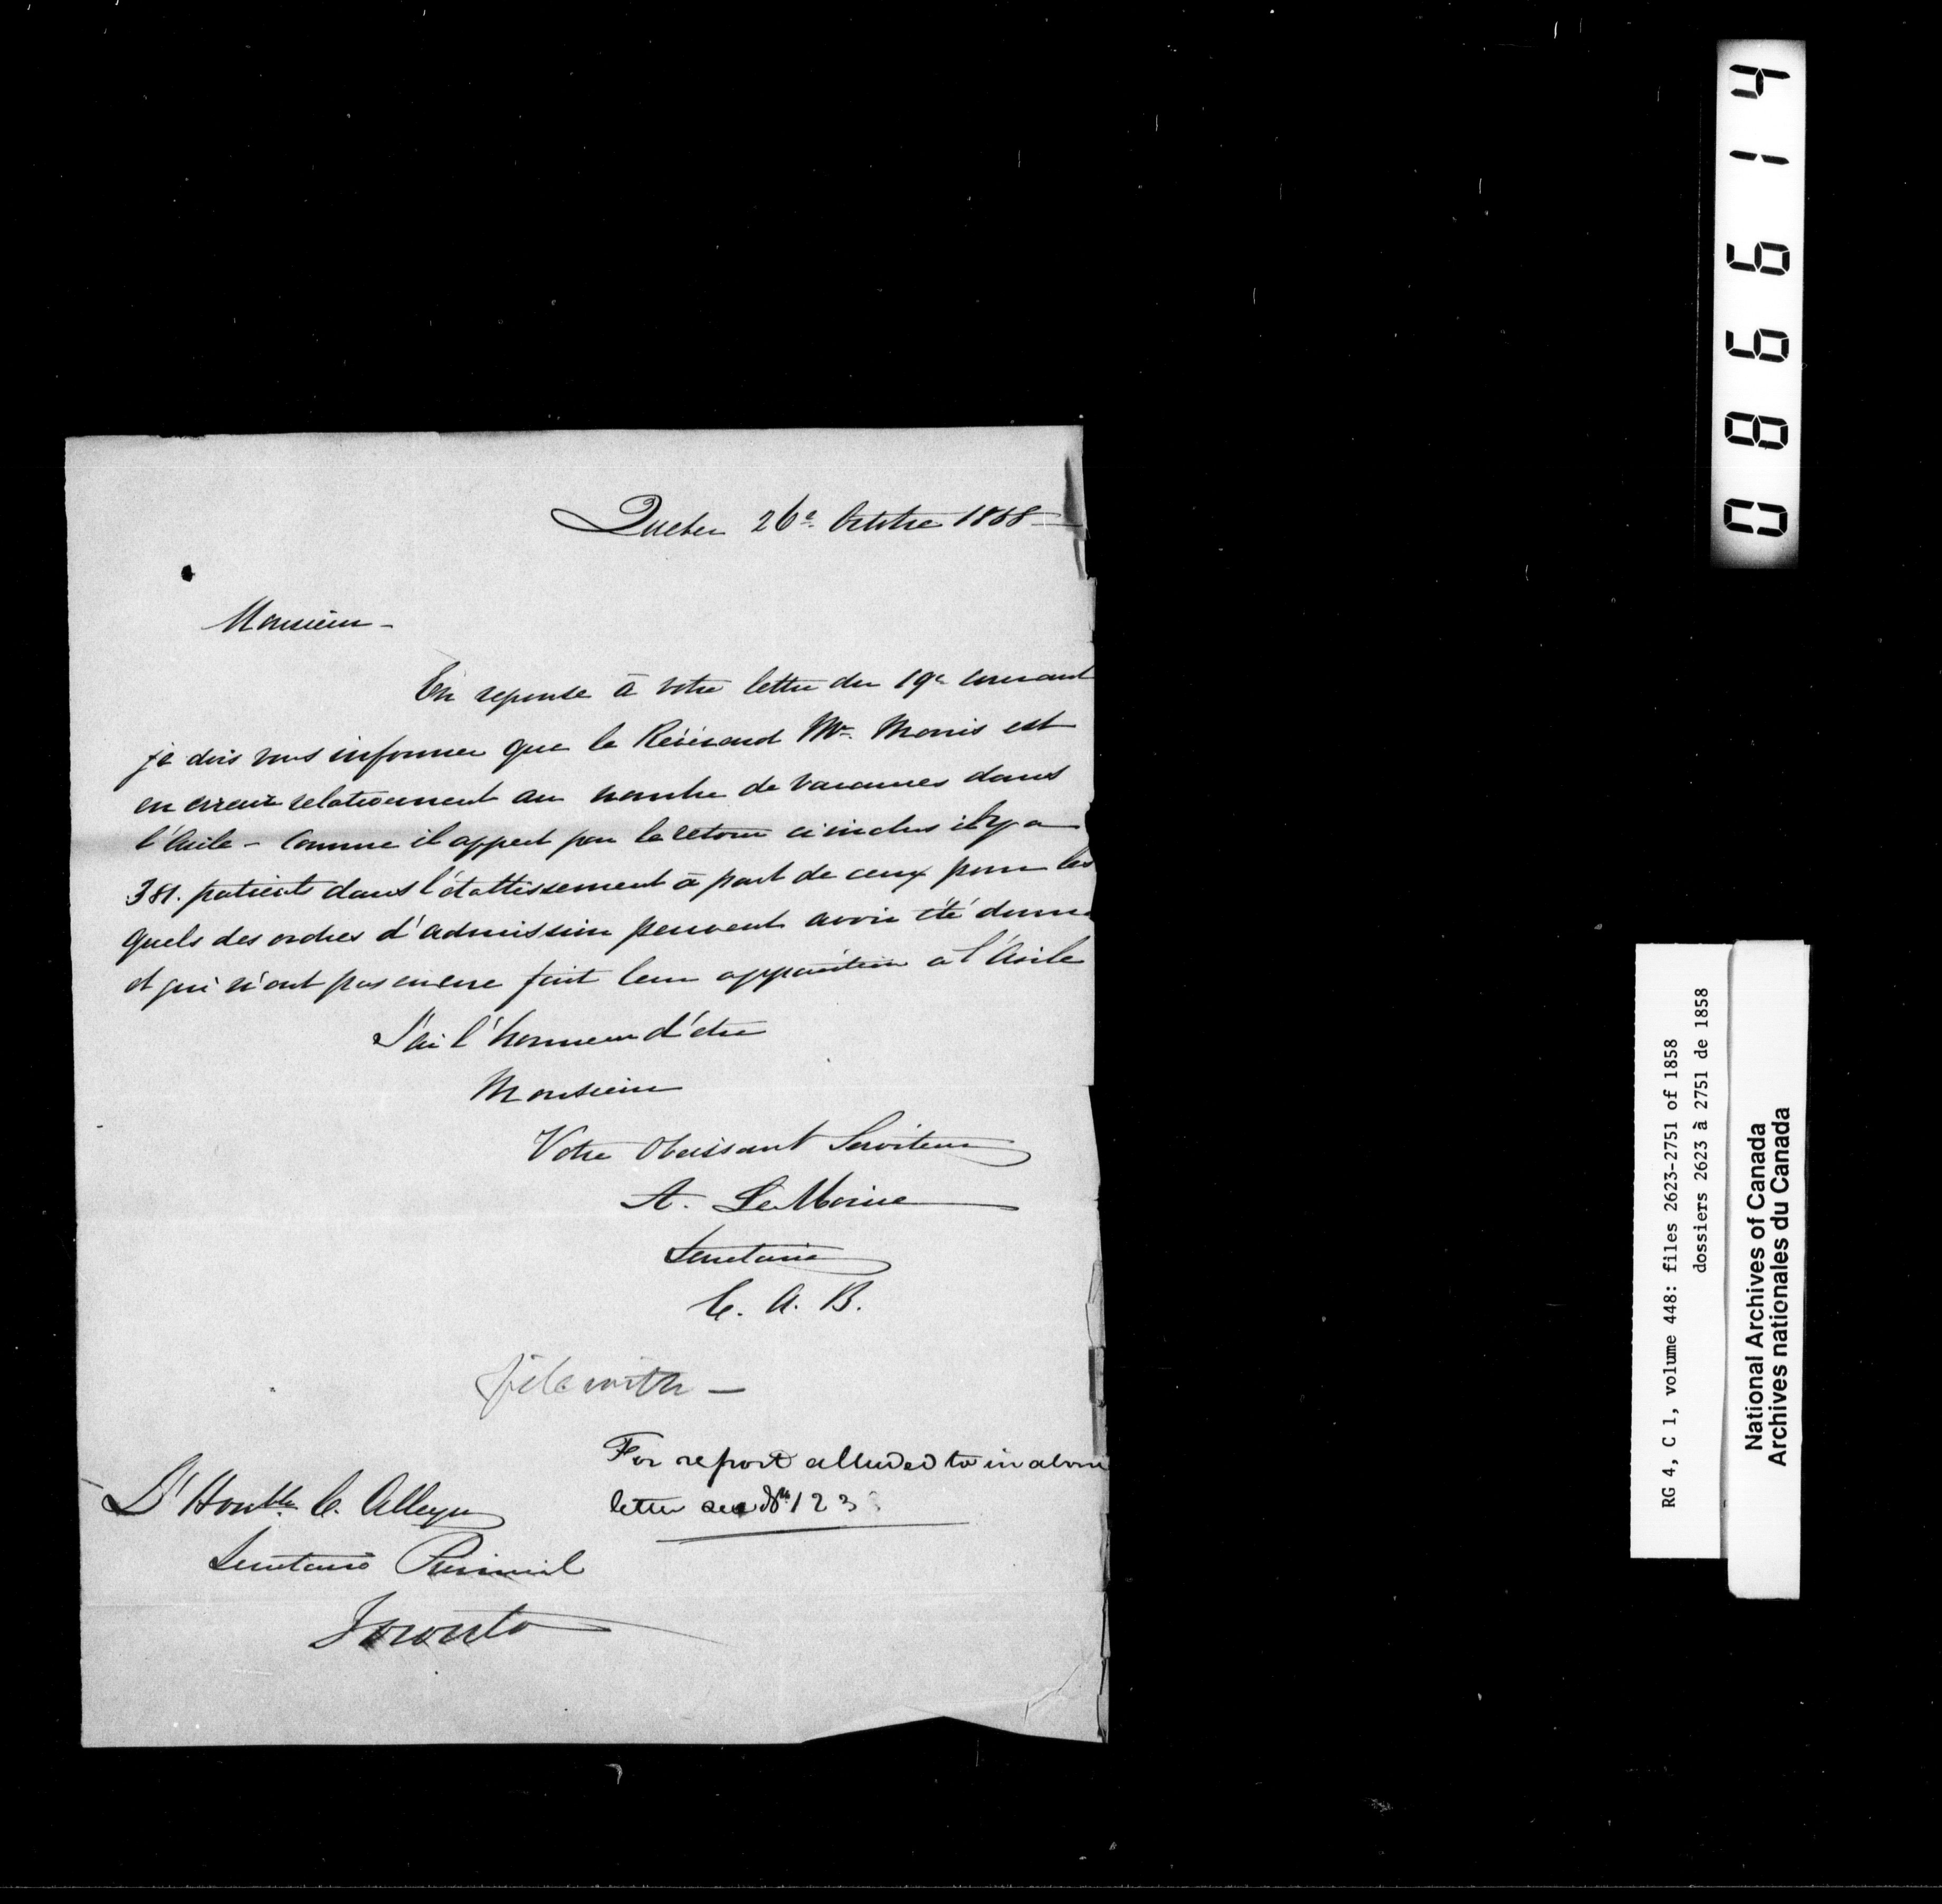 Quebec 26e Octobre 1858
Monsieur -
En reponse à votre lettre du 19e courant
je dois vous informer que le Révérend Mr. Morris est
en erreur relativement au nombre de vacances dans
l'Asile - Comme il appert par le retour ci inclus il y a
381. patients dans l'établissement à part de ceux pour les
quels des ordres d'admission peuvent avoir été donnés
et qui n'ont pas encore fait leur apparition a l'Asile
J'ai l'honneur d'être
Monsieur
Votre Obeissant Serviteur
A. LeMoine
Secretaire
C. A. B.
File with -
For report alluded to in above
letter see No. 123
L'Honble. C. Alleyn
Secretaire Provincial
Toronto
086614
RG 4, C 1, volume 448: files 2623-2751 of 1858
dossiers 2623 à 2751 de 1858
National Archives of Canada
Archives nationales du Canada